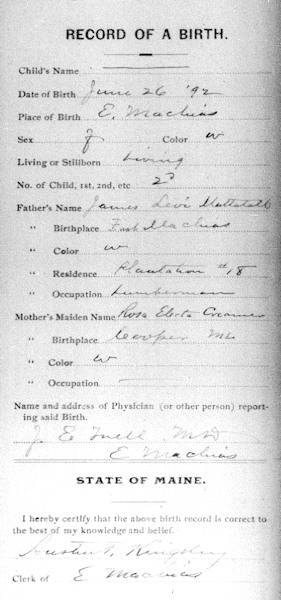 RECORD OF A BIRTH.
Child's Name
Date of Birth June 26 '92
Place of Birth E. Machias
Sex f Color w
Living or Stillborn Living
No. of Child, 1st, 2nd, etc 2d
Father's Name James Levi Mattatall
" Birthplace East Machias
" Color w
" Residence Plantation #18
" Occupation Lumberman
Mother's Maiden Name Rosa Electa Creamer
" Birthplace Cooper Me.
" Color w
" Occupation —
Name and address of Physician (or other person) report-
ing said Birth.
J. E. Tuell MD
E Machias
STATE OF MAINE.
I hereby certify that the above birth record is correct to
the best of my knowledge and belief.
Austin F. Kingsley
Clerk of E Machias